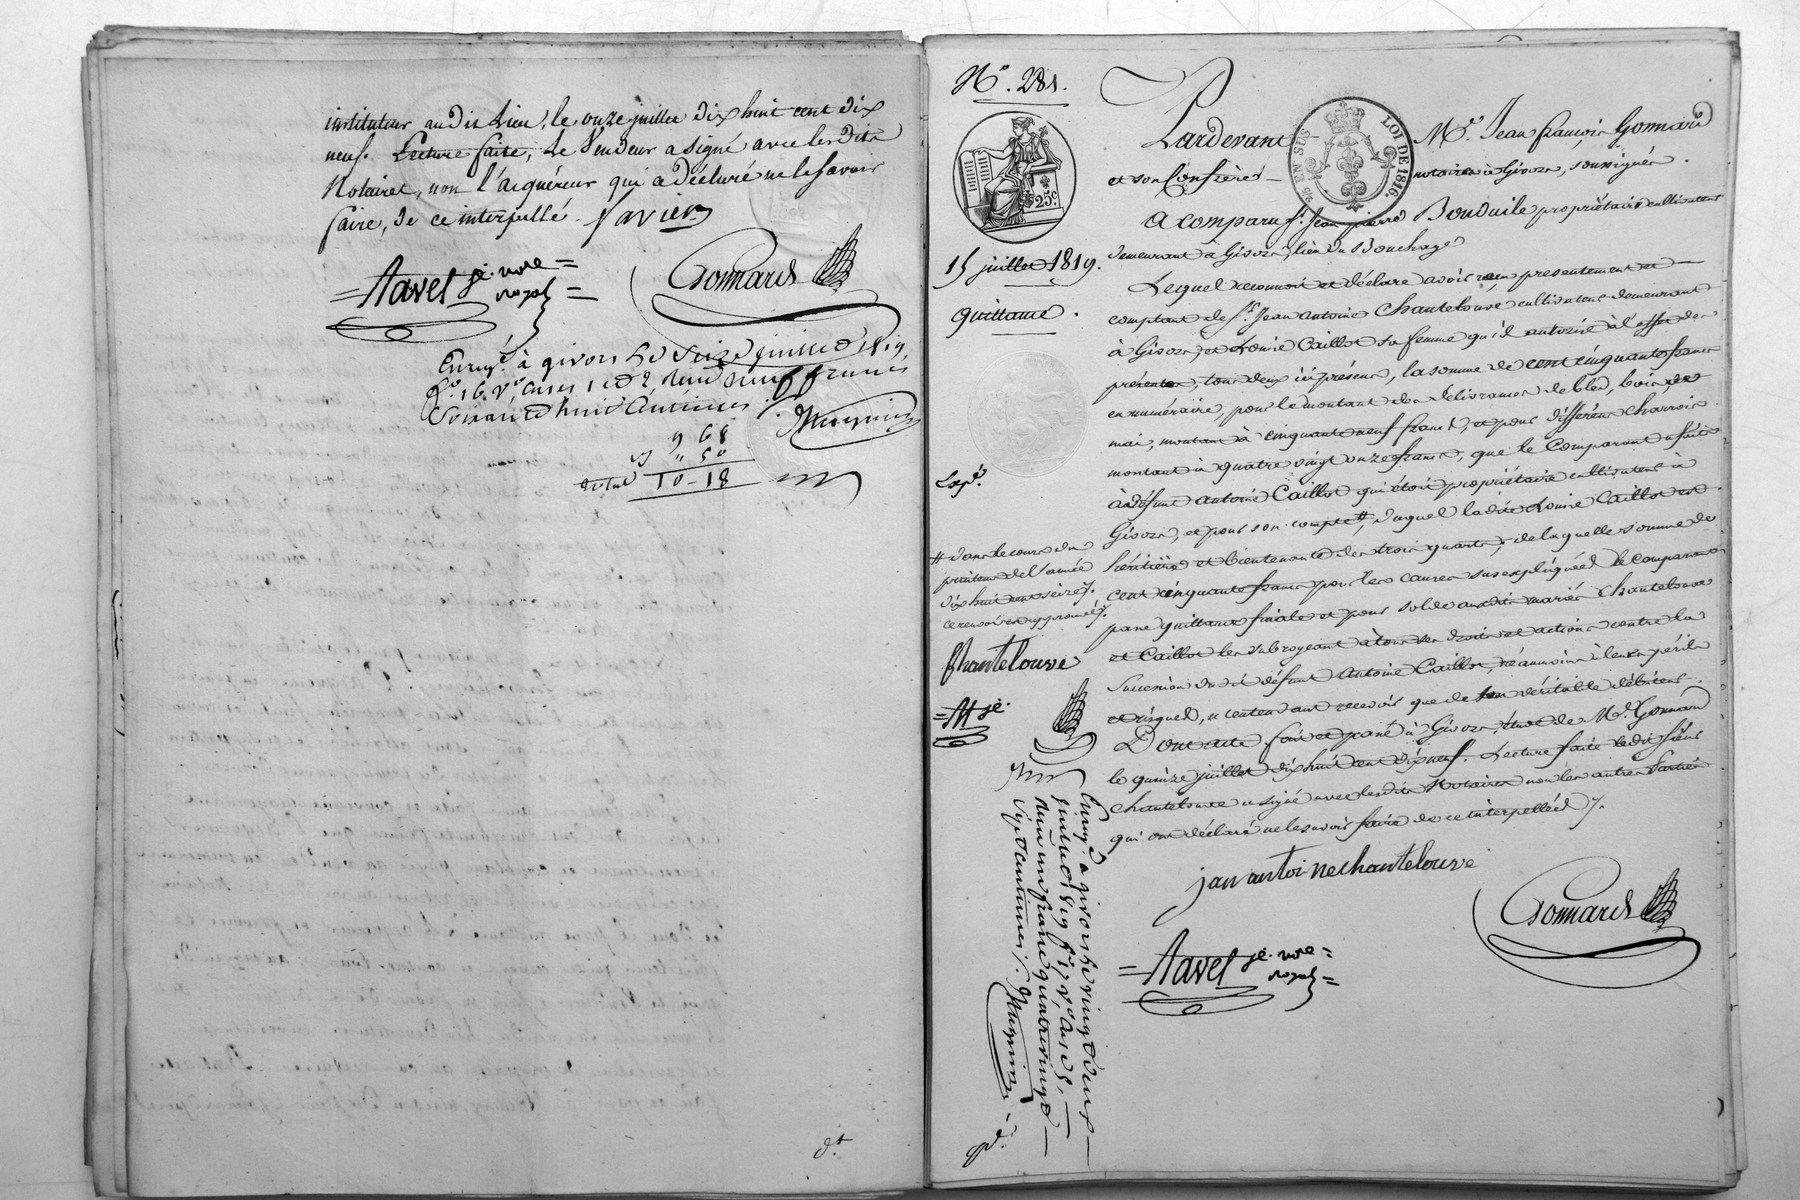 instituteur audit Lieu, le onze juillet dix huit cent dix
neuf. Lecture faite, Le Vendeur a signé avec lesdits
Notaires, non l'acquéreur qui a déclaré ne le savoir
faire, de ce interpellé. favier
Navel je. nore
royal
Gonnard
Enreg.é à givors Le Seize juillet 1819,
f.o 16. v.o cases 1 et 2, Reçu neuf francs
Soixante huit Centimes
9 68
" 50
total 10-18
d.t
N.o 281.
25c
15 juillet 1819.
quittance.
Exp.é
25 EN SUS
LOI DE 1816.
Pardevant M.e Jean françois Gonnard
et son Confrère notaires à Givors, soussignés.
A comparu S.r Jean pierre Bonduile propriétaire cultivateur
demeurant à Givors, lieu du Bouchage
Lequel reconnoit et déclare avoir reçu présentement et
comptant de S.r Jean Antoine Chantelouve cultivateur demeurant
à Givors, et Louise Caillot sa femme qu'il autorise à l'effet des
présentes, tous deux ici présens, la somme de cent cinquante francs
en numéraire, pour le montant des délivrances de bled, bois et
mai, montant à cinquante neuf francs, et pour différens charrois
montant à quatre vingt onze francs, que le Comparant a faits
à défunt Antoine Caillot qui étoit propriétaire cultivateur à
Givors, et pour son compte #, duquel ladite Louise Caillot est
héritière et bientenante des trois quarts; de laquelle somme de
cent cinquante francs pour les causes sus expliquées le comparant
passe quittance finale et pour solde auxdits mariés Chantelouve
et Caillot les subrogeant à tous ses droits et actions contre la
Succession dudit défunt Antoine Caillot, néanmoins à leurs périls
et risques, n'entendant recevoir que de son véritable débiteur.
Dont acte fait et passé à Givors, étude de M.e Gonnard
le quinze juillet dix huit cent dix neuf. Lecture faite ledit sieur
Chantelouve a signé avec lesdits Notaires non les autres Parties
qui ont déclaré ne le savoir faire de ce interpellées /.
# dans le cours du
printems de l'année
dix huit cent seize /.
ce renvoi est approuvé /.
Chantelouve
jan antoine chantelouve
Gonnard
Navel je. nore
royal
Enreg.é à givors le vingt deux
juillet 1819 f.o 17 v.o Cases 5,
Reçu un franc quatre vingt
Sept centimes /.